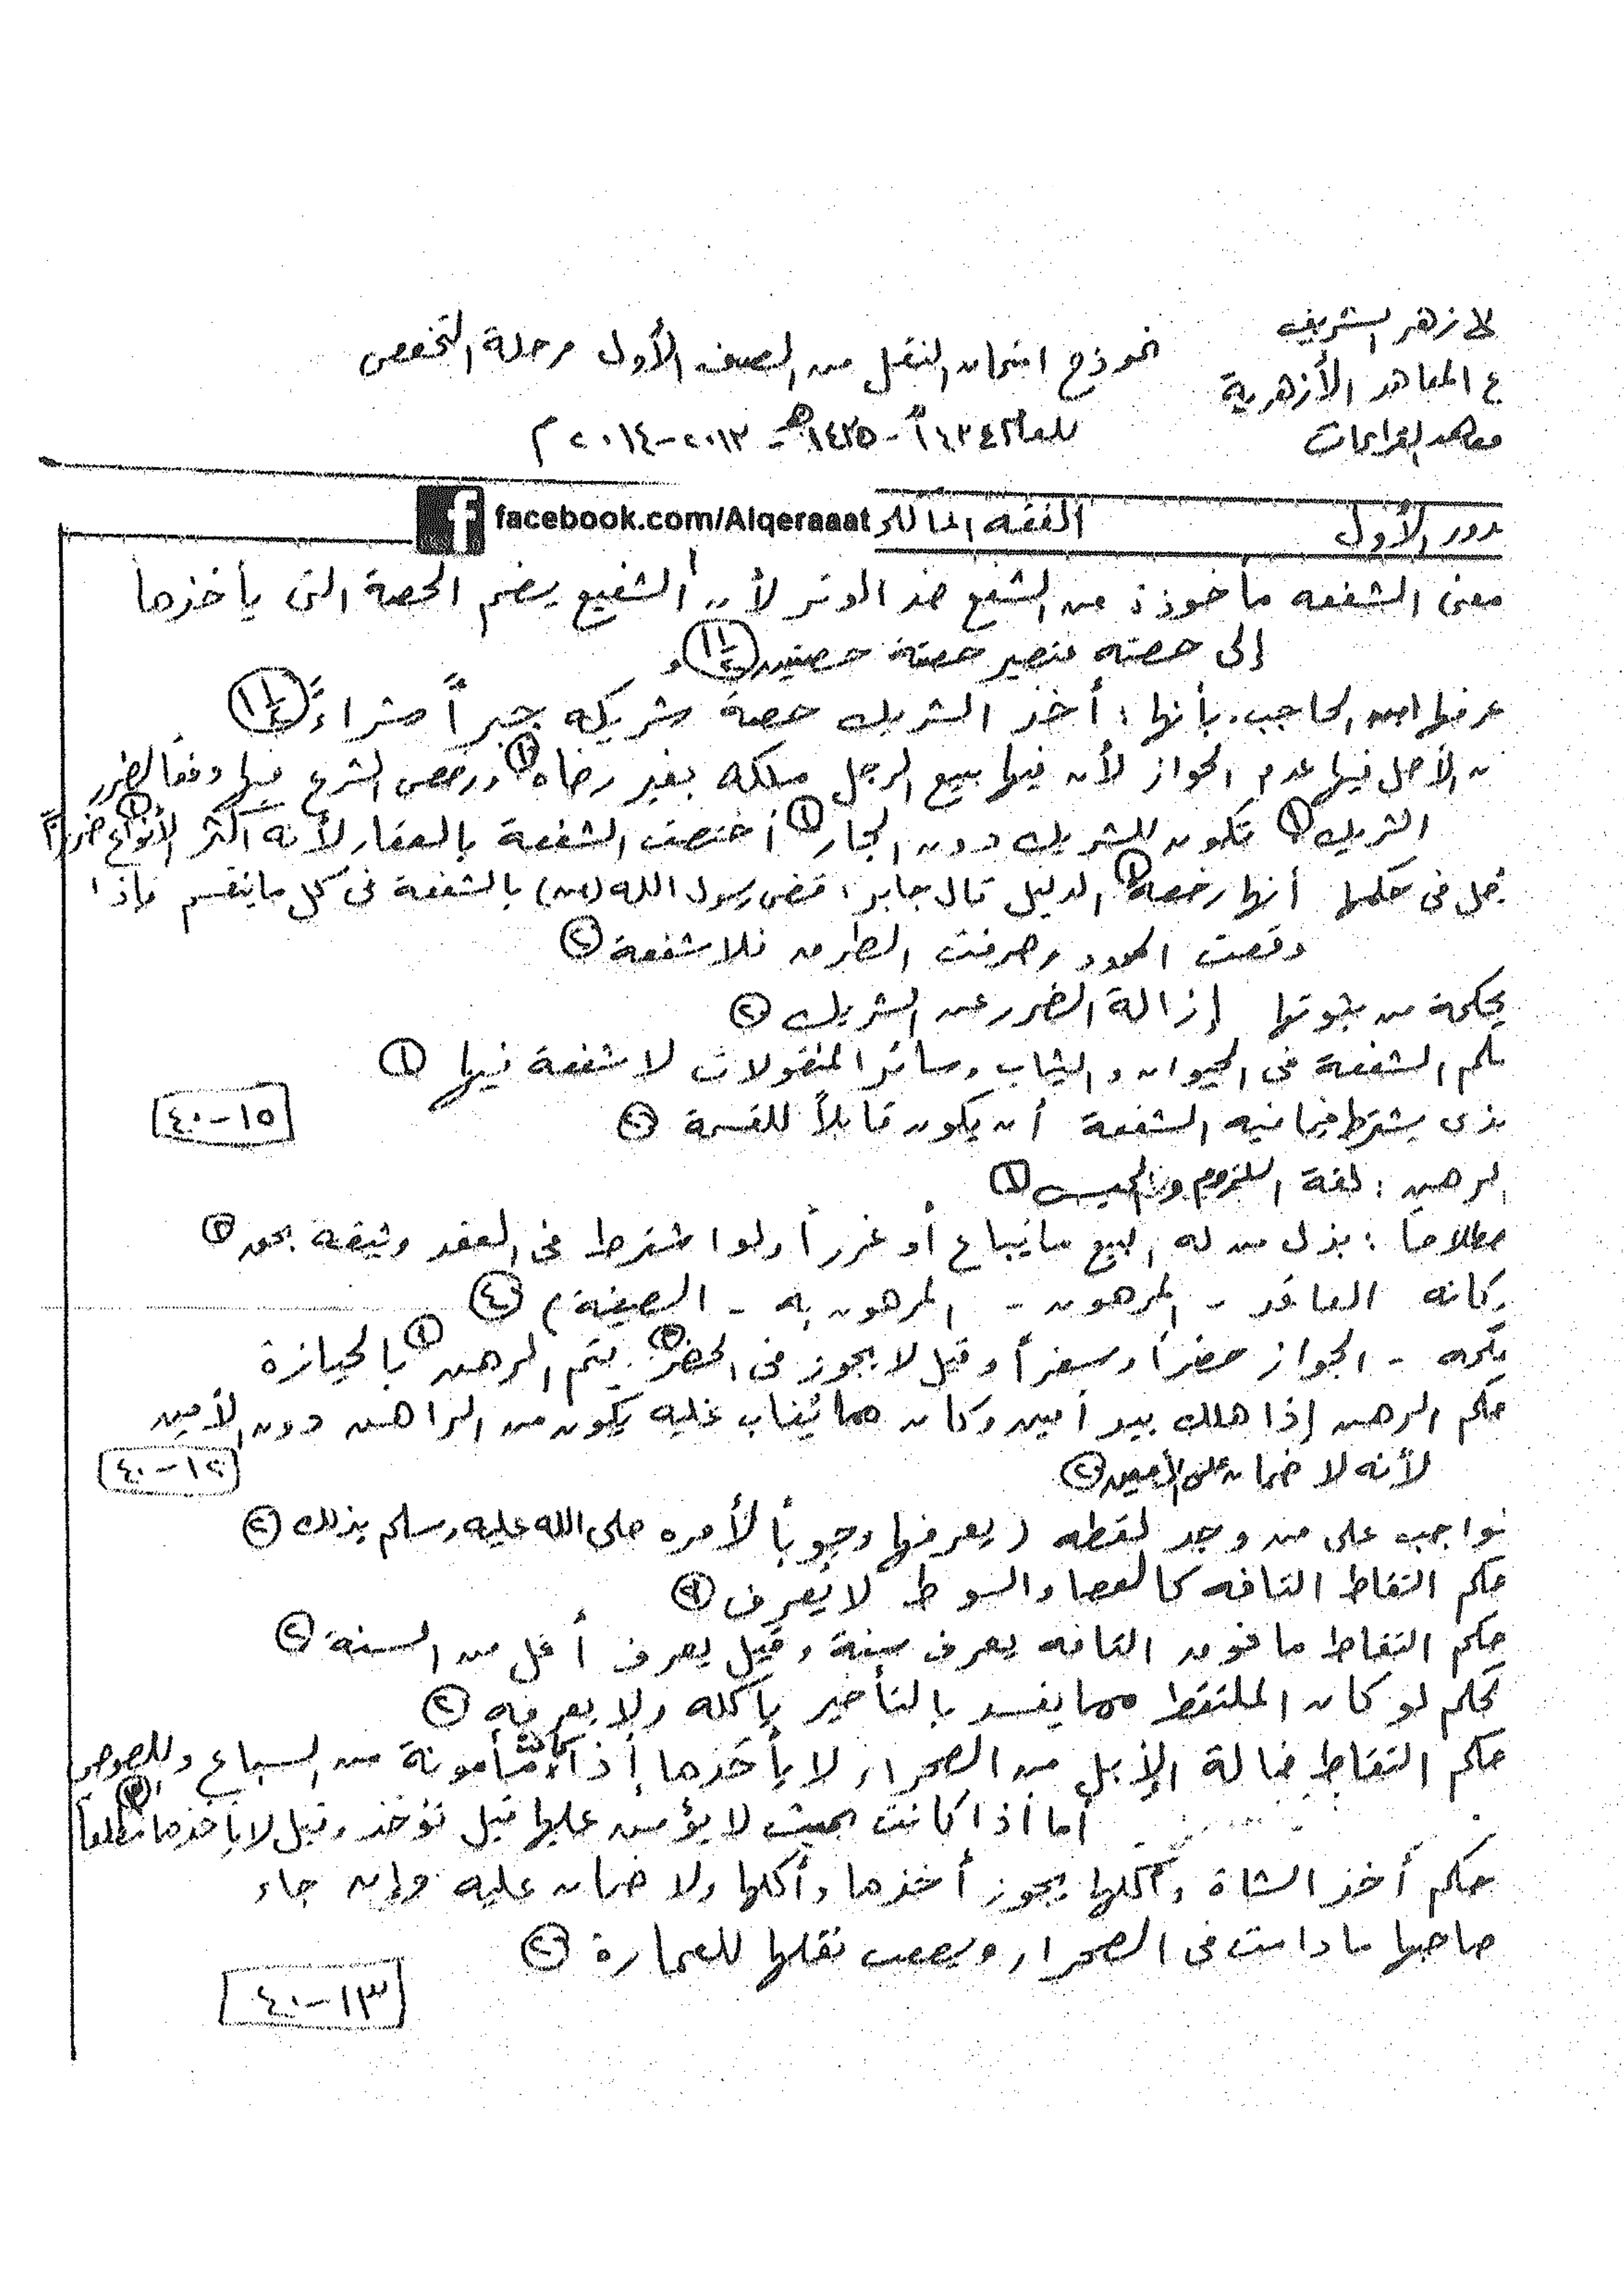 الأزهر الشريف
نموذج امتحان النقل من الصف الأول مرحلة التخصص
ع المعاهد الأزهرية
معاهد القراءات
للعام ١٤٣٤ - ١٤٣٥هـ - ٢٠١٣-٢٠١٤ م
دور الأول
الفقه المالكى
facebook.com/Alqeraaat
معنى الشفعه مأخوذة من الشفع ضد الوتر لأن الشفيع يضم الحصة التى يأخذها
إلى حصته فتصير حصته حصتين ١ ١/٢
عرفها ابن الحاجب. بأنها: أخذ الشريك حصة شريكه جبراً شراءً ١ ١/٢
ن الأصل فيها عدم الجواز لأن فيها بيع الرجل ملكه بغير رضاه ١ ورخص الشرع فيها دفعا لضرر
الشريك ١ تكون للشريك دون الجار ١ اختصت الشفعة بالعقار لأنه أكثر الأنواع ضرراً ١
فى حكمها أنها رخصة ١ الدليل قال جابر: قضى رسول الله (ص) بالشفعة فى كل ما ينقسم فإذا
وقعت الحدود وصرفت الطرق فلا شفعة ٢
من ثبوتها إزالة الضرر عن الشريك ٢
الشفعة فى الحيوان والثياب وسائر المنقولات لا شفعة فيها ١
يشترط فيما فيه الشفعة أن يكون قابلاً للقسمة ٢
١٥-٤٠
الرهن: لغة اللزوم والحبس ١
بذل من له البيع ما يباع أو غرراً ولو اشترط فى العقد وثيقة بحق ٢
العاقد - المرهون - المرهون به - الصيغة) ٤
- الجواز حضراً وسفراً وقيل لا يجوز فى الحضر ٢ يتم الرهن ١ بالحيازة
حكم الرهن إذا هلك بيد أمين وكان مما يُغاب عليه يكون من الراهن دون الأمين
لأنه لا ضمان على الأمين ٢
١٢-٤٠
على من وجد لقطه (يعرفها وجوباً لأمره صلى الله عليه وسلم بذلك ٢
حكم التقاط التافه كالعصا والسوط لا يُعرف ٢
حكم التقاط ما فوق التافه يعرف سنة وقيل يعرف أقل من السنة ٢
لو كان الملتقط مما يفسد بالتأخير يأكله ولا يعرفه ٢
حكم التقاط ضالة الإبل من الصحراء لا يأخذها إذا كانت مأمونة من السباع واللصوص
أما إذا كانت بحيث لا يؤمن عليها قيل تؤخذ وقيل لا يأخذها مطلقاً
حكم أخذ الشاة وأكلها يجوز أخذها وأكلها ولا ضمان عليه وإن جاء
صاحبها ما دامت فى الصحراء ويصعب نقلها للعمارة ٢
١٣-٤٠